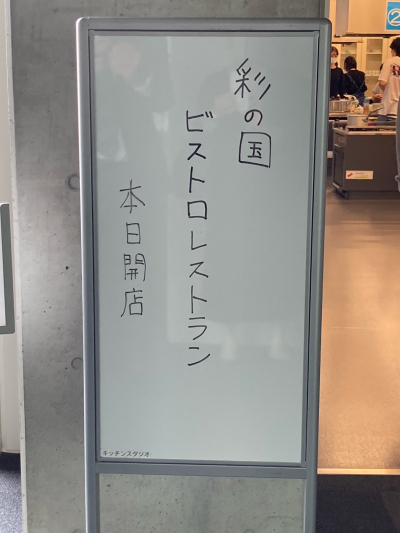 彩の国
ビストロレストラン
本日開店
キッチンスタジオ
②